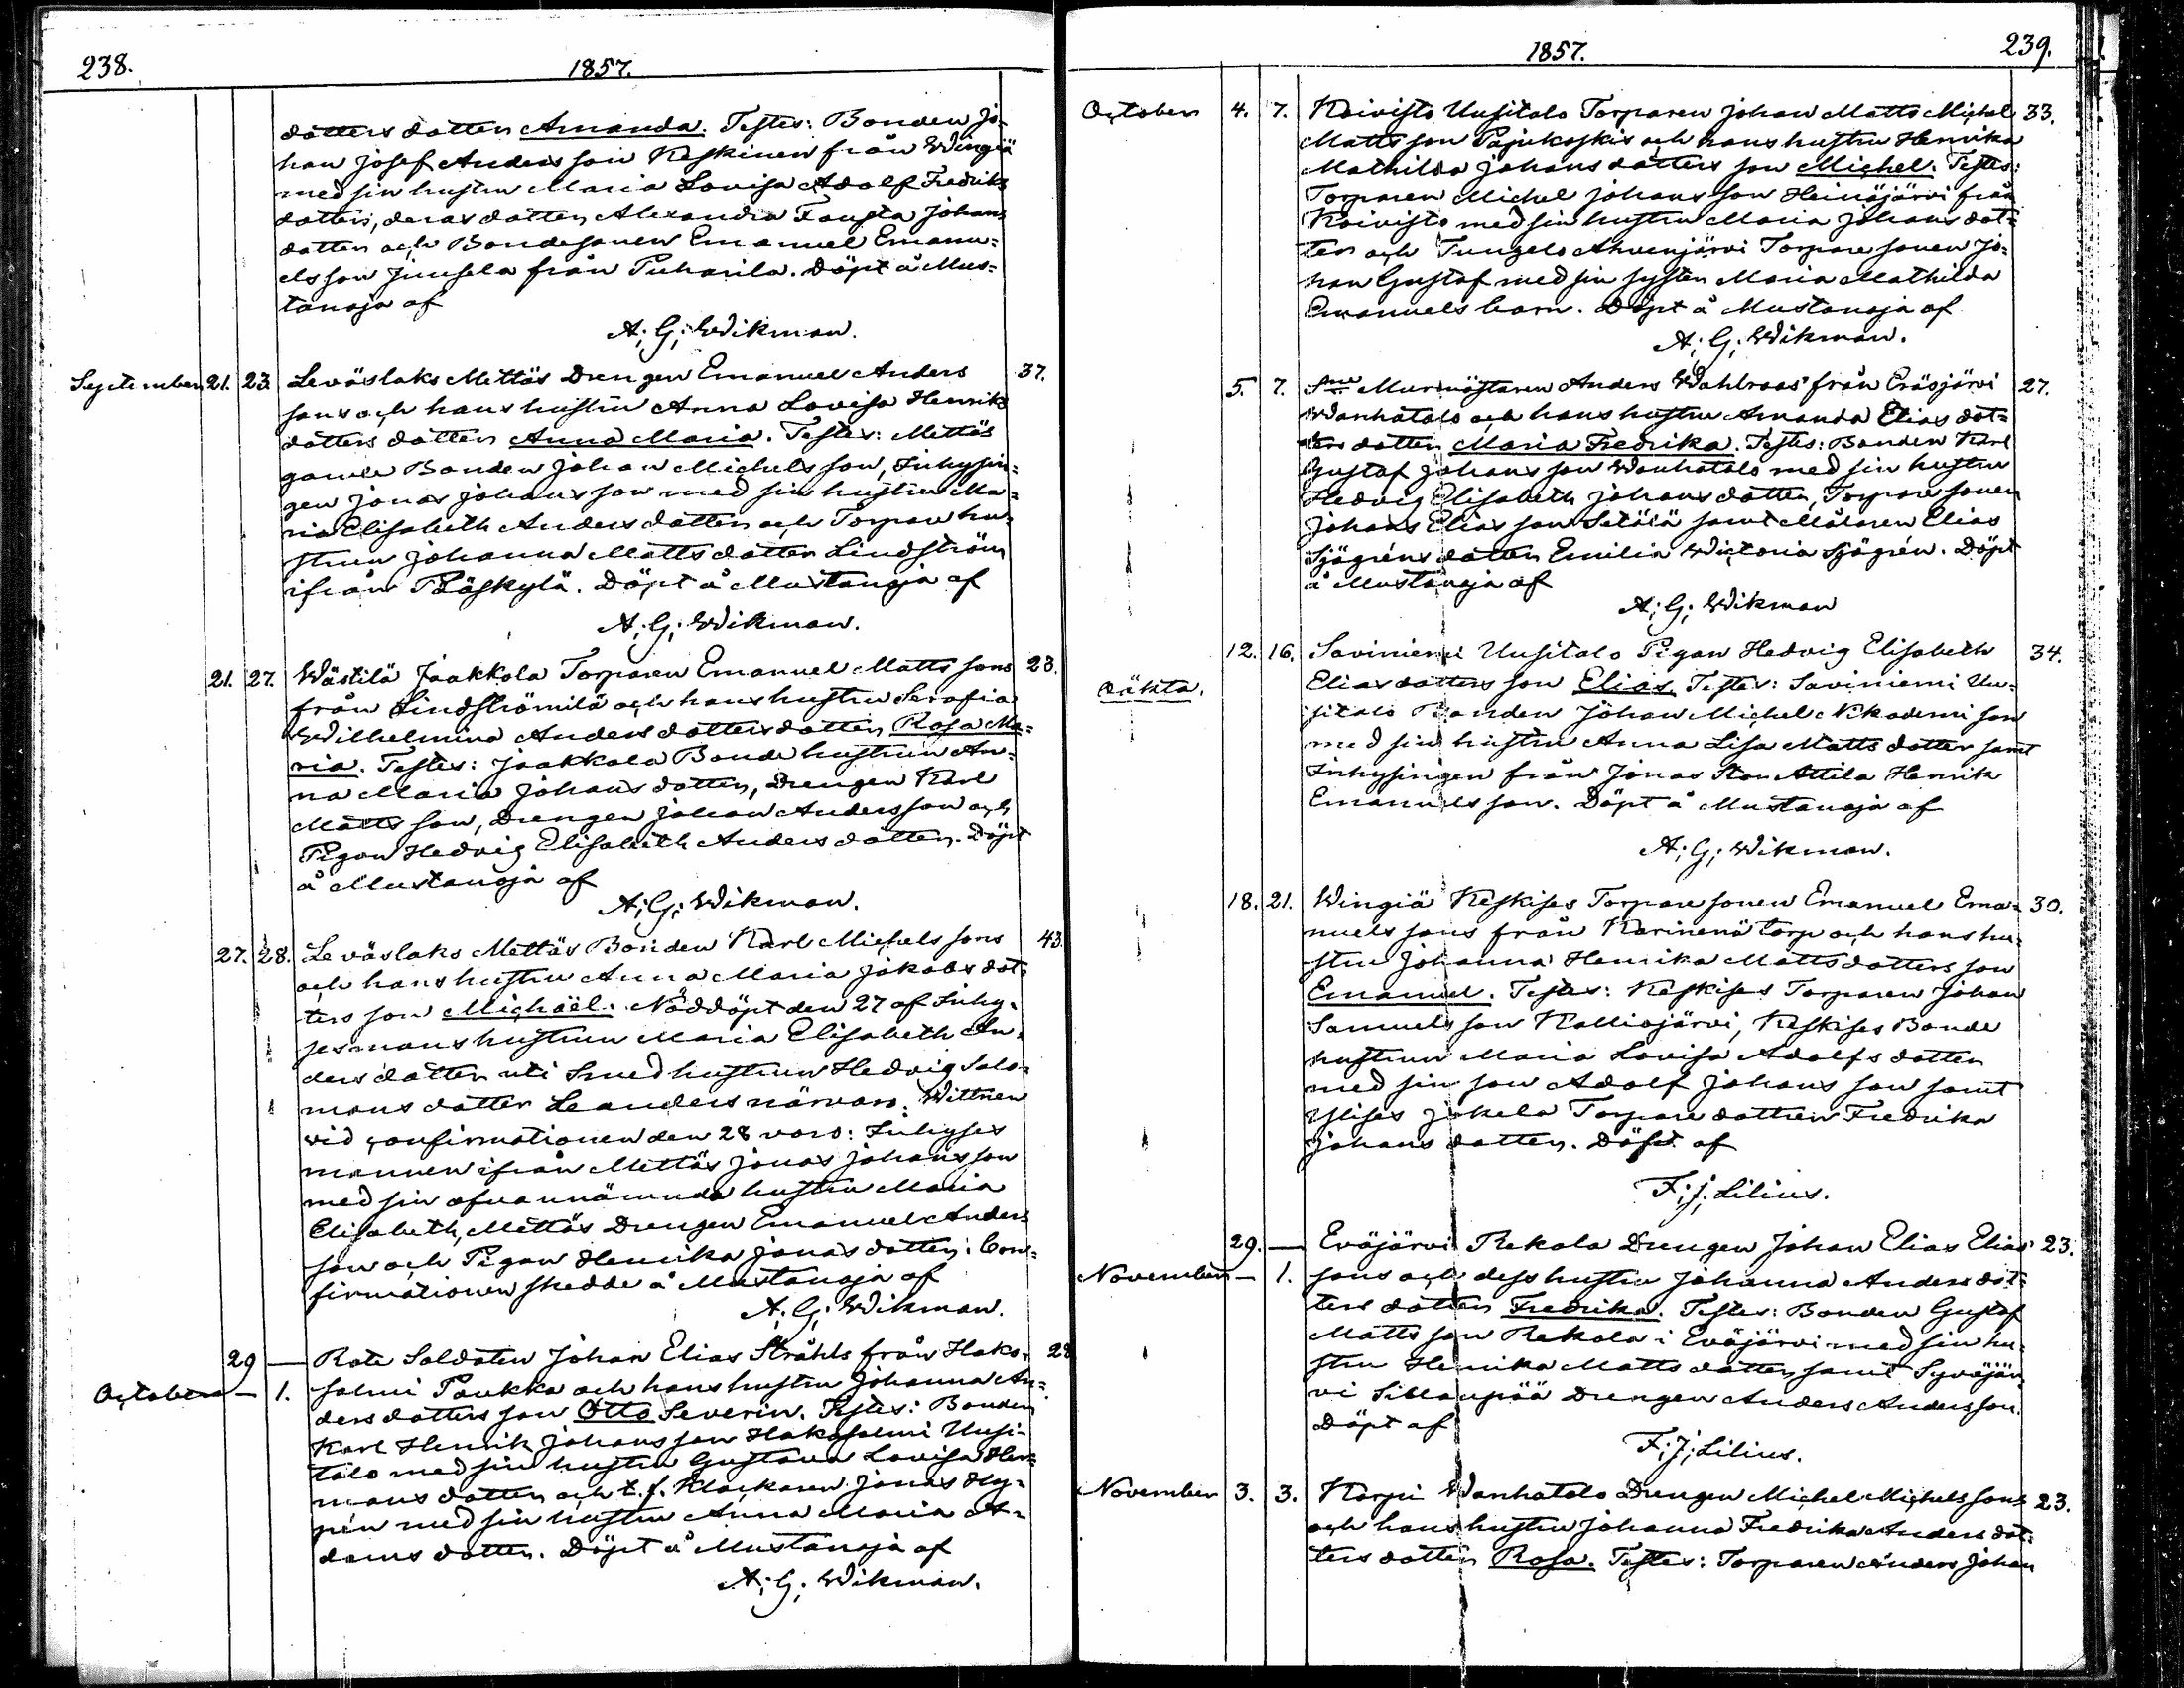 238.
1857.
dotters dotter Amanda. Testes: Bonden Jo-
han Josef Anders son Keskinen från Wingiä
med sin hustru Maria Lovisa Adolf Fredriks
dotter, deras dotter Alexandra Fausta Johans
dotter och Bondesonen Emanuel Emanu=
els son Junsela från Puharila. Döpt å Mus=
tanoja af
A; G; Wikman.
September 21. 23. Leväslaks Mettäs Drengen Emanuel Anders 37.
sons och hans hustru Anna Lovisa Henriks
dotters dotter Anna Maria. Testes: Mettäs
gamla Bonden Johan Michels son, Inhysin=
gen Jonas Johans son med sin hustru Ma=
ria Elisabeth Anders dotter och Torpare hu=
strun Johanna Matts dotter Lindström
ifrån Pääskylä. Döpt å Mustanoja af
A; G; Wikman.
21. 27. Wästilä Jaakkola Torparen Emanuel Matts sons 23.
från Lindströmilä och hans hustru Serafia
Wilhelmina Anders dotters dotter Rosa Ma=
ria. Testes: Jaakkola Bonde hustrun An=
na Maria Johans dotter, Drengen Karl
Matts son, Drengen Johan Anders son och
Pigan Hedvig Elisabeth Anders dotter. Döpt
å Mustanoja af
A; G; Wikman.
27. 28. Leväslaks Mettäs Bonden Karl Michels sons 43.
och hans hustru Anna Maria Jakobs dot=
ters son Michaël. Nöddöpt den 27 af Inhy=
sesmans hustrun Maria Elisabeth An=
ders dotter uti Smed hustrun Hedvig Salo=
mons dotter Leanders närvaro. Wittnen
vid confirmationen den 28 voro: Inhyses
mannen ifrån Mettäs Jonas Johans son
med sin ofvannämnda hustru Maria
Elisabeth, Mettäs Drengen Emanuel Anders
son och Pigan Henrika Jonas dotter. Con=
firmationen skedde å Mustanoja af
A; G; Wikman.
29 — Rote Soldaten Johan Elias Stråhls från Hako= 28.
October — 1. salmi Paukka och hans hustru Johanna An=
ders dotters son Otto Severin. Testes: Bonden
Karl Henrik Johans son Hakosalmi Uusi-
talo med sin hustru Gustava Lovisa Her=
mans dotter och t. f. Klockaren Jonas Hy=
pén med sin hustru Anna Maria A=
dams dotter. Döpt å Mustanoja af
A; G; Wikman.
1857.
239.
October 4. 7. Koivisto Uusitalo Torparen Johan Matts Michel 33.
Matts son Pajukoskis och hans hustru Henrika
Mathilda Johans dotters son Michel. Testes:
Torparen Michel Johans son Heinäjärvi från
Koivisto med sin hustru Maria Johans dot=
ter och Tungelo Ahvenjärvi Torpare sonen Jo=
han Gustaf med sin syster Maria Mathilda
Emanuels barn. Döpt å Mustanoja af
A; G; Wikman.
5. 7. Murmästaren Anders Wahlroos' från Eräojärvi 27.
Wanhatalo och hans hustru Amanda Elias dot=
ters dotter Maria Fredrika. Testes: Bonden Karl
Gustaf Johans son Wanhatalo med sin hustru
Hedvig Elisabeth Johans dotter, Torpare sonen
Johans Elias son Setälä samt Målaren Elias
Sjögréns dotter Emilia Wictoria Sjögrén. Döpt
å Mustanoja af
A; G; Wikman
12. 16. Saviniemi Uusitalo Pigan Hedvig Elisabeth 34.
oäkta. Elias dotters son Elias. Testes: Saviniemi Uu=
sitalo Bonden Johan Michel Nikodemi son
med sin hustru Anna Lisa Matts dotter samt
Inhysingen från Jonas Stor Attila Henrik
Emanuels son. Döpt å Mustanoja af
A; G; Wikman.
18. 21. Wingiä Keskises Torpare sonen Emanuel Ema= 30.
nuels sons från Karinenä torp och hans hu=
stru Johanna Henrika Matts dotters son
Emanuel. Testes: Keskises Torparen Johan
Samuels son Kalliojärvi, Keskises Bonde
hustrun Maria Lovisa Adolfs dotter
med sin son Adolf Johans son samt
Ylises Jokela Torpare dottren Fredrika
Johans dotter. Döpt af
F; J; Lilius.
29. — Eväjärvi Rekola Drengen Johan Elias Elias 23.
November — 1. sons och dess hustru Johanna Anders dot=
ters dotter Fredrika. Testes: Bonden Gustaf
Matts son Rekola i Eväjärvi med sin hu=
stru Henrika Matts dotter samt Syväjär=
vi Sillanpää Drengen Anders Anders son.
Döpt af
F; J; Lilius.
November 3. 3. Karpi Wanhatalo Drengen Michel Michels sons 23.
och hans hustru Johanna Fredrika Anders dot=
ters dotter Rosa. Testes: Torparen Anders Johan